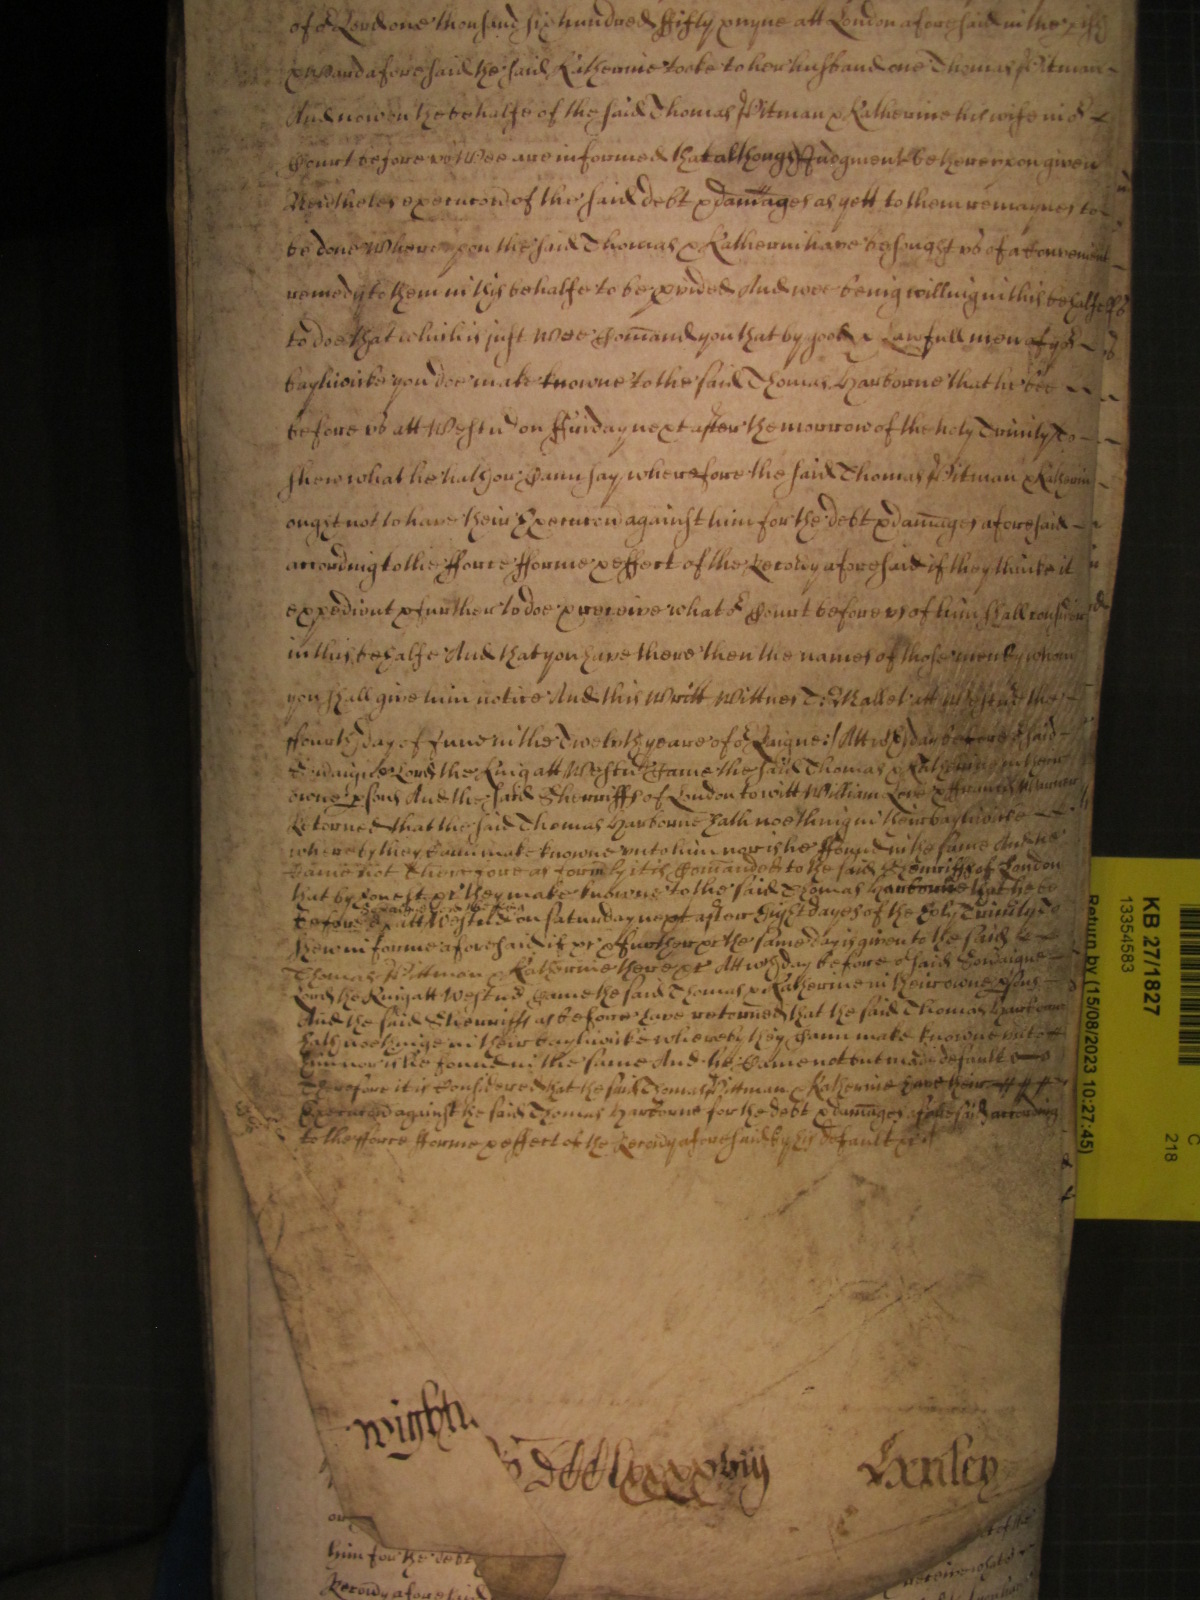 of o Lord one thousand six hundred ffifty & nyne att London aforesaid in the pish
& Ward aforesaid the said Katherine tooke to her husband one Thomas Pitman
And now on the behalfe of the said Thomas Pitman & Katherine his wife in o
Court before us Wee are informed that although Judgment be thereupon given
Neverthelesse execucon of the said debt & damages as yett to them remaynes to
be done Whereupon the said Thomas & Katherin have besought us of a convenient
remedy to them in this behalfe to be pvided And wee being willing in this behalfe
to doe that which is just Wee Comand you that by good & Lawfull men of yor
bayliwicke you doe make knowne to the said Thomas Harborne that he bee
before us att Westm on ffriday next after the morrow of the holy Trinity To
shew what he hath or Cann say wherefore the said Thomas Pitman & Katherin
ought not to have their Execucon against him for the debt & damages aforesaid
according to the fforce fforme & effect of the Recovy aforesaid if they thinke it
expedient & further to doe & receive what o Court before us of him shall consider
in this behalfe And that you have there then the names of those men by whom
you shall give him notice And this Writt Wittnes T: Mallet att Westm the
ffourth day of June in the Twelvth yeare of o Raigne:/ Att wch day before o said
Sovaigne Lord the King att Westm Came the said Thomas & Katherine in their
owne psons And the said Sherriffs of London to witt William
Retorned that the said Thomas Harborne hath noething in their bayliwicke
whereby they Cann make knowne unto him nor is he ffound in the same And he
Came not Therefore as formly it is Comanded to the said Sherriffs of London
that by honest &c they make knowne to the said Thomas Harborne that he be
before att Westm on Saturday next after Eight dayes of the holy Trinity To
shew in forme aforesaid if &c & further &c the same day is given to the said
Thomas Pittman & Katherine there &c Att wch day before o said Sovaigne
Lord the King att Westm Came the said Thomas & Katherine in their owne psons
And the said Sherriffs as before have retorned that the said Thomas Harborne
hath noethinge in their bayliwicke whereby they Cann make knowne unto
him nor is he found in the same And he Came not but made default
Therefore it is Considered that the said Thomas Pittman & Katherine have their
Execucon against the said Thomas Harborne for the debt & damages aforesaid according
to the fforce fforme & effect of the Recovy aforesaid by his default &c
wight
Lxnley
him for the debt
Recovy aforesaid
KB 27/1827
13354583
Return by (15/08/2023 10:27:45)
C
218